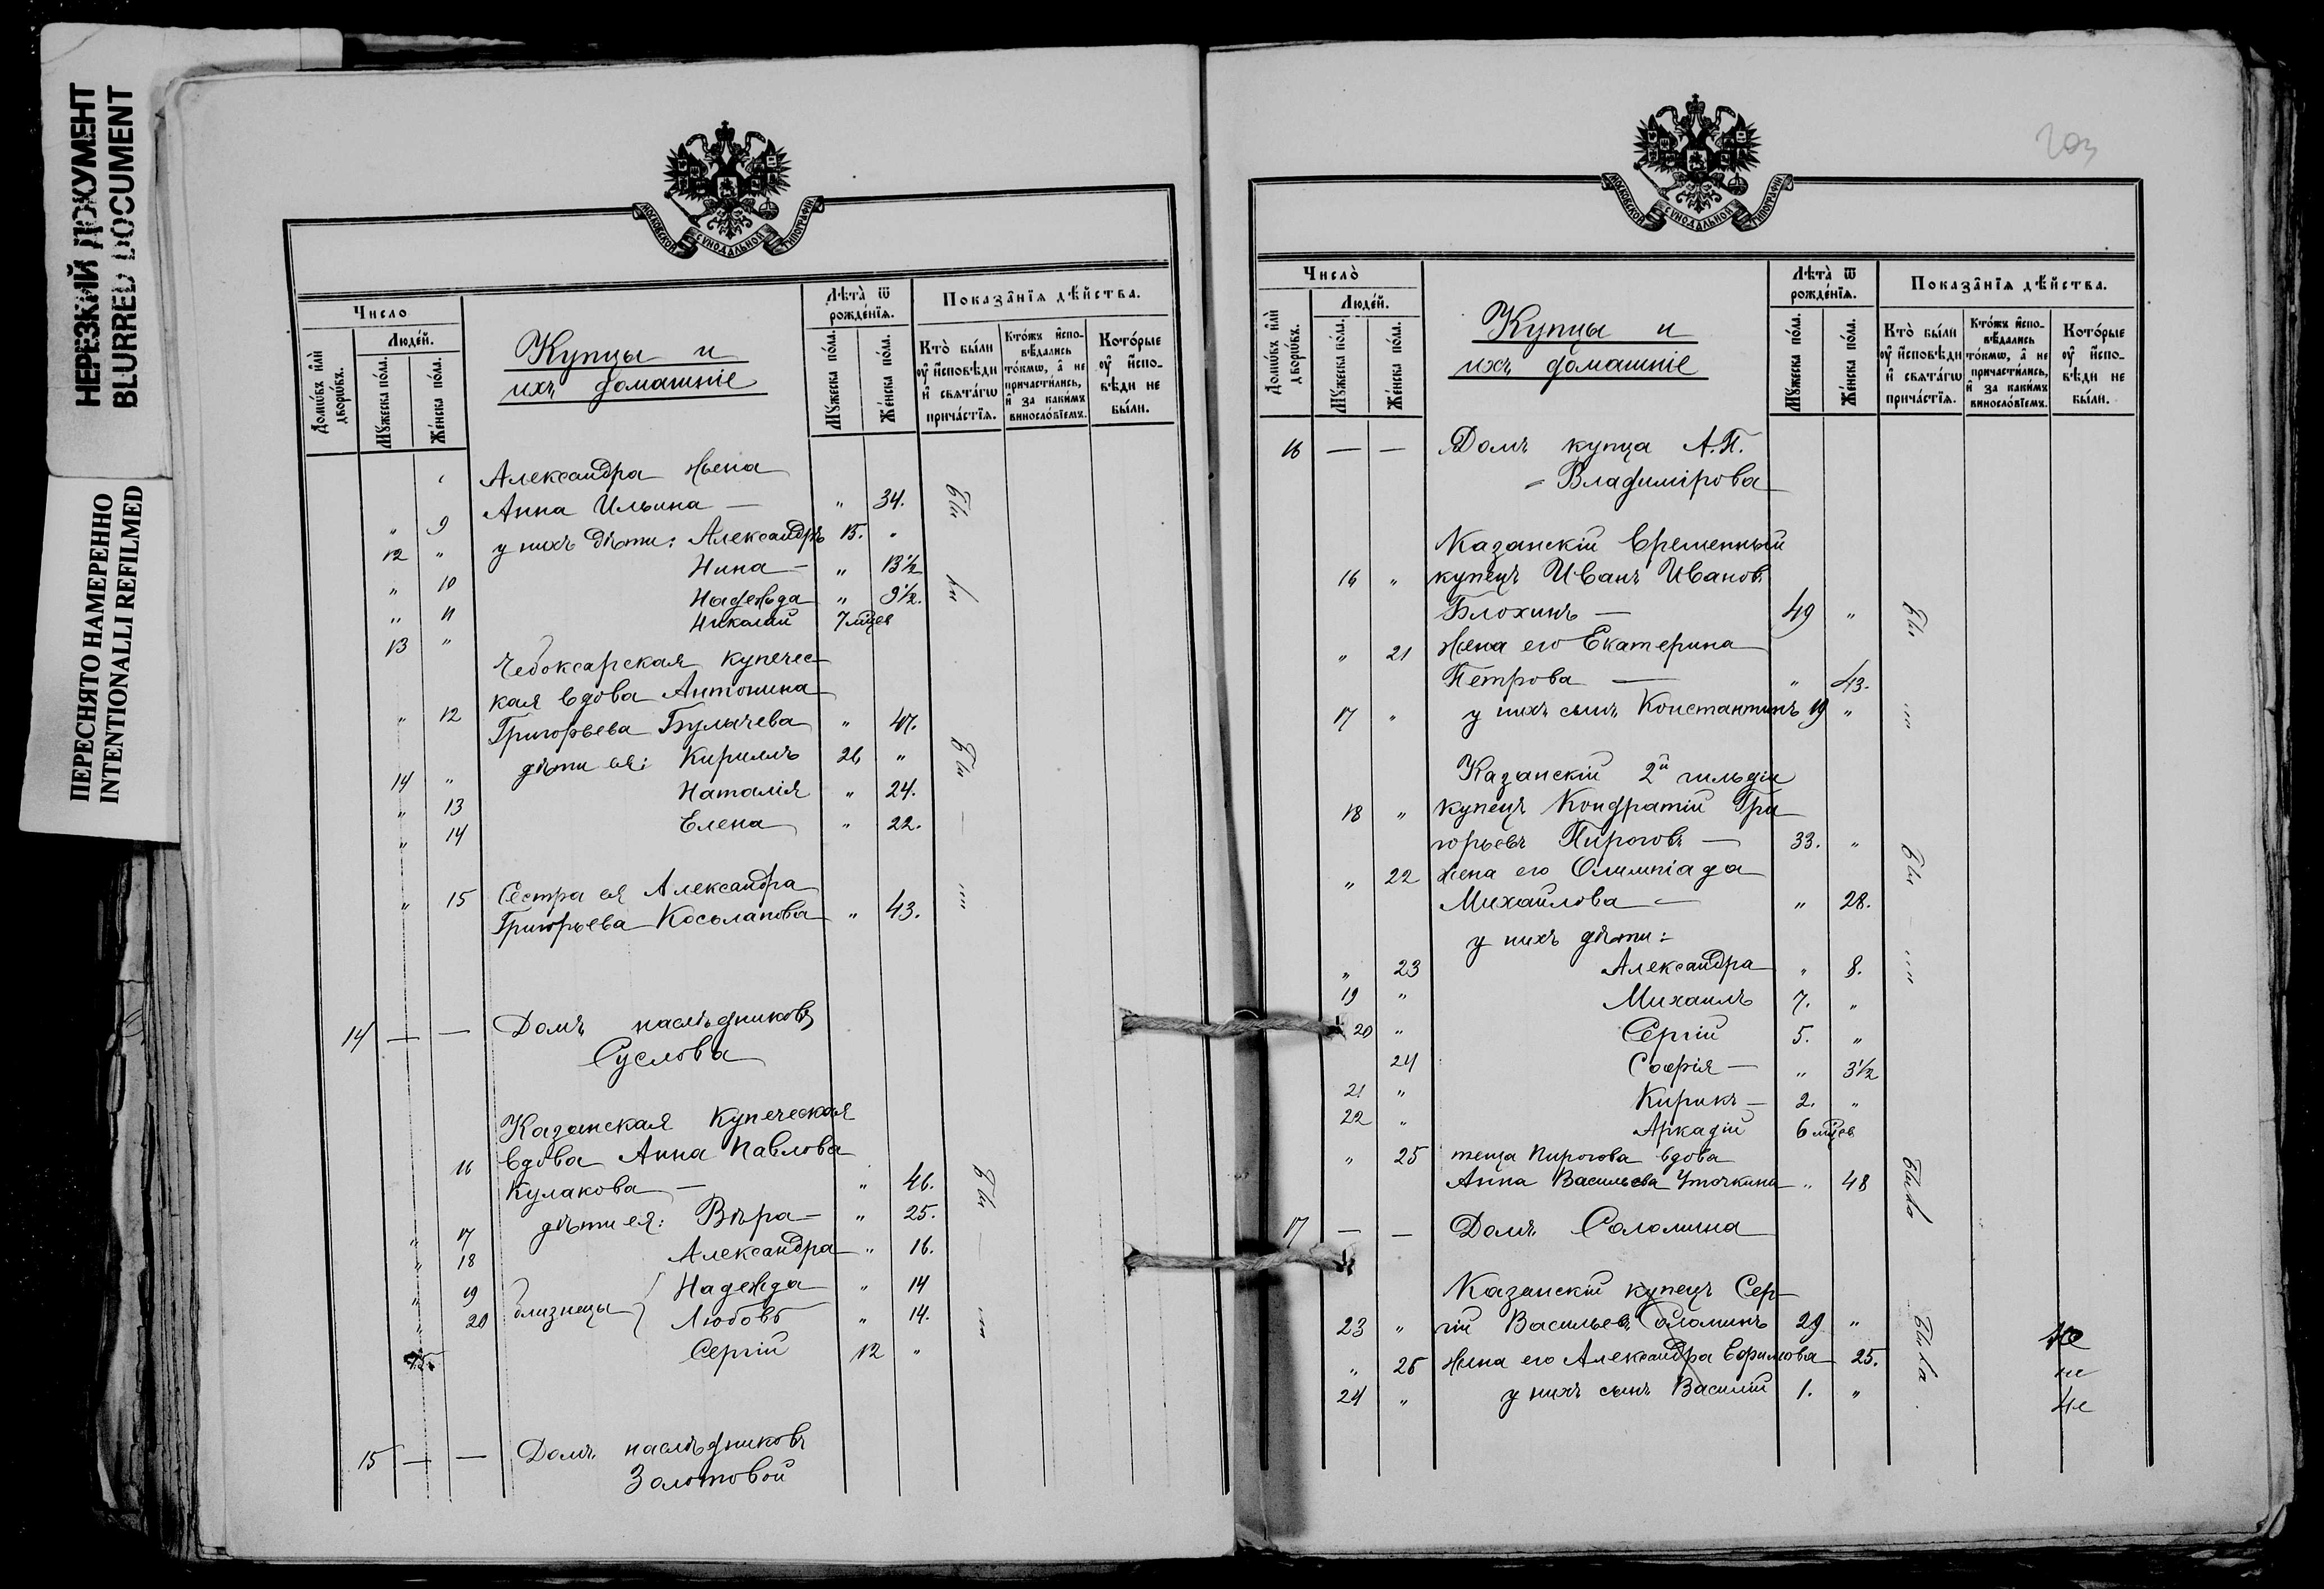 НЕРЕЗКИЙ ДОКУМЕНТ
BLURRED DOCUMENT
ПЕРЕСНЯТО НАМЕРЕННО
INTENTIONALLI REFILMED
МОСКОВСКОЙ СѴНОДАЛЬНОЙ ТИПОГРАФІИ
Число
Домѡвъ и҆лѝ дворѡвъ.
Люде́й.
Мꙋ́жеска по́ла.
Же́нска по́ла.
Купцы и
ихъ домашніе
Лѣта̀ ѿ рожде́нїѧ.
Мꙋ́жеска по́ла.
Же́нска по́ла.
Показа̑нїѧ дѣ́йства.
Кто̀ бы́ли ᲂу҆ и҆сповѣди и҆ свѧта́гѡ прича́стїѧ.
Кто́жъ и҆сповѣдались то́кмѡ, а҆ не причасти́лись, и҆ за каки́мъ виносло́вїемъ.
Кото́рые ᲂу҆ и҆сповѣди не бы́ли.
Александра жена
" 9 Анна Ильина — " 34.
12 " у нихъ дѣти: Александръ 15. "
" 10 Нина — " 13½
" 11 Надежда " 9½.
13 " Николай 7 мцев
Чебоксарская купечес-
кая вдова Антонина
" 12 Григорьева Булычева " 47.
14 " дѣти ея: Кириллъ 26 "
" 13 Наталія " 24.
" 14 Елена " 22.
" 15 Сестра ея Александра
Григорьева Косолапова " 43.
14 — — Домъ наслѣдниковъ
Суслова
Казанская купеческая
16 вдова Анна Павлова
Кулакова — " 46.
" 17 дѣти ея: Вѣра — " 25.
" 18 Александра " 16.
" 19 близнецы Надежда " 14
" 20 Любовь " 14.
15. Сергій 12 "
15 — — Домъ наслѣдниковъ
Золотовой
203
МОСКОВСКОЙ СѴНОДАЛЬНОЙ ТИПОГРАФІИ
Число̀
Домѡвъ и҆лѝ дворѡвъ.
Люде́й.
Мꙋ́жеска по́ла.
Же́нска по́ла.
Купцы и
ихъ домашніе
Лѣта̀ ѿ рожде́нїѧ.
Мꙋ́жеска по́ла.
Же́нска по́ла.
Показа̑нїѧ дѣ́йства.
Кто̀ бы́ли ᲂу҆ и҆сповѣди и҆ свѧта́гѡ прича́стїѧ.
Кто́жъ и҆сповѣдались то́кмѡ, а҆ не причасти́лись, и҆ за каки́мъ виносло́вїемъ.
Кото́рые ᲂу҆ и҆сповѣди не бы́ли.
16 — — Домъ купца А.П.
Владимірова
Казанскій временный
16 " купецъ Иванъ Иванов.
Блохинъ — 49 "
" 21 Жена его Екатерина
Петрова — " 43.
17 " у нихъ сынъ Константинъ 19 "
Казанскій 2й гильдіи
18 " купецъ Кондратій Гри-
горьевъ Пироговъ — 33. "
" 22 жена его Олимпіада
Михайлова — " 28.
у нихъ дѣти:
" 23 Александра " 8.
19 " Михаилъ 7. "
20 " Сергій 5. "
24 Софія — " 3½
21 " Кирикъ — 2. "
22 " Аркадій 6 мцев
" 25 теща Пирогова вдова
Анна Васильева Уточкина " 48 Была
17 — — Домъ Соломина
Казанскій купецъ Сер-
23 " гій Васильевъ Соломинъ 29 " не
" 26 Жена его Александра Ефимова 25. не
24 " у нихъ сынъ Василій 1. " не